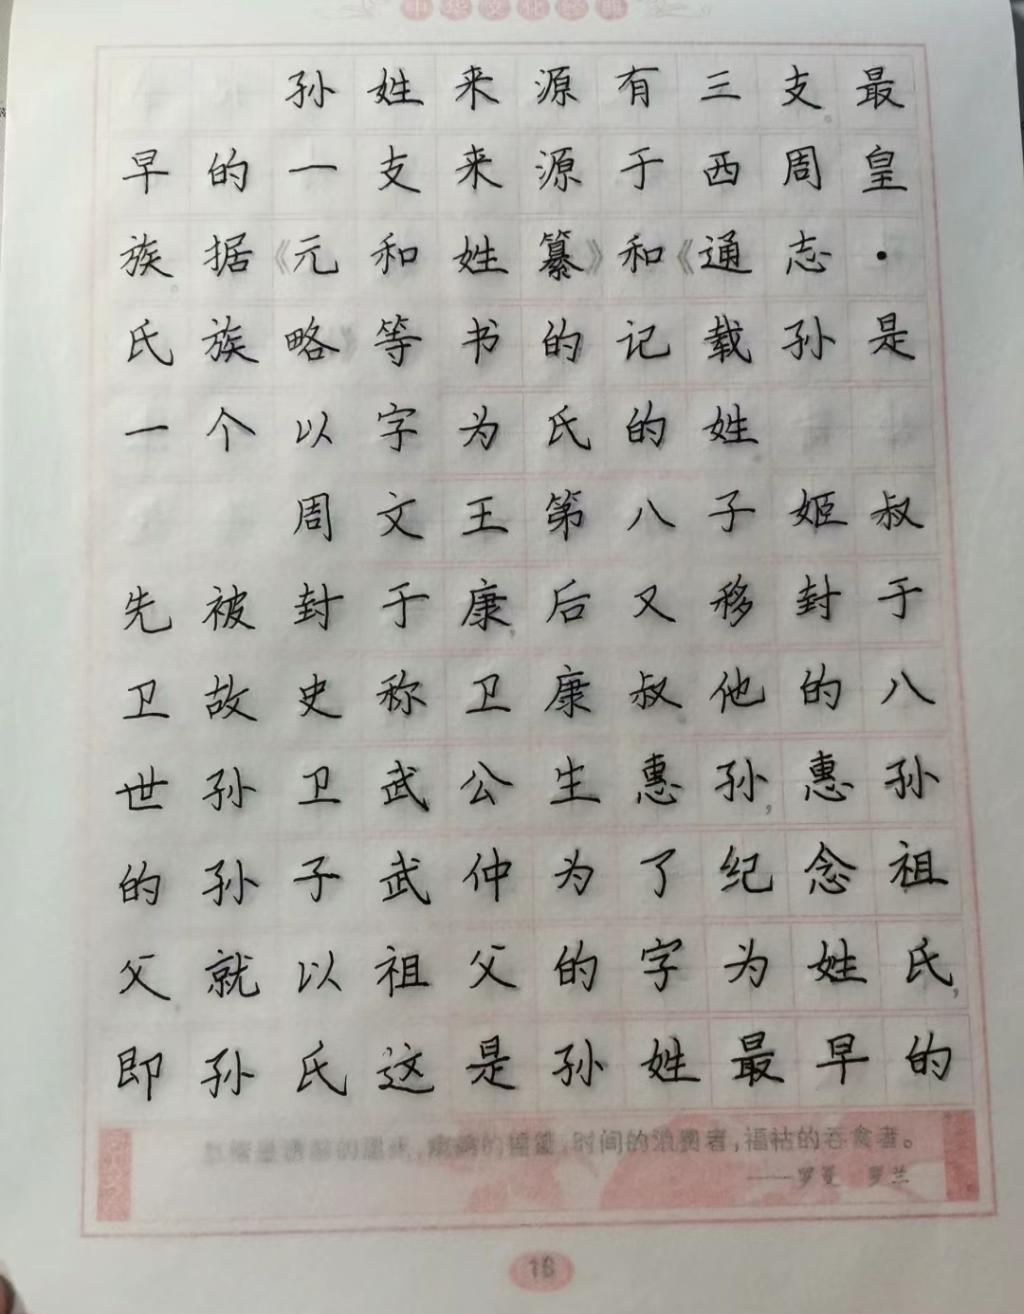 中华文化经典
孙姓来源有三支。最
早的一支来源于西周皇
族。据《元和姓纂》和《通志·
氏族略》等书的记载孙是
一个以字为氏的姓。
周文王第八子姬叔
先被封于康,后又移封于
卫故史称卫康叔。他的八
世孙卫武公生惠孙,惠孙
的孙子武仲为了纪念祖
父,就以祖父的字为姓氏,
即孙氏这是孙姓最早的
时间的浪费者,福祜的吞食者。
——罗曼 罗兰
16